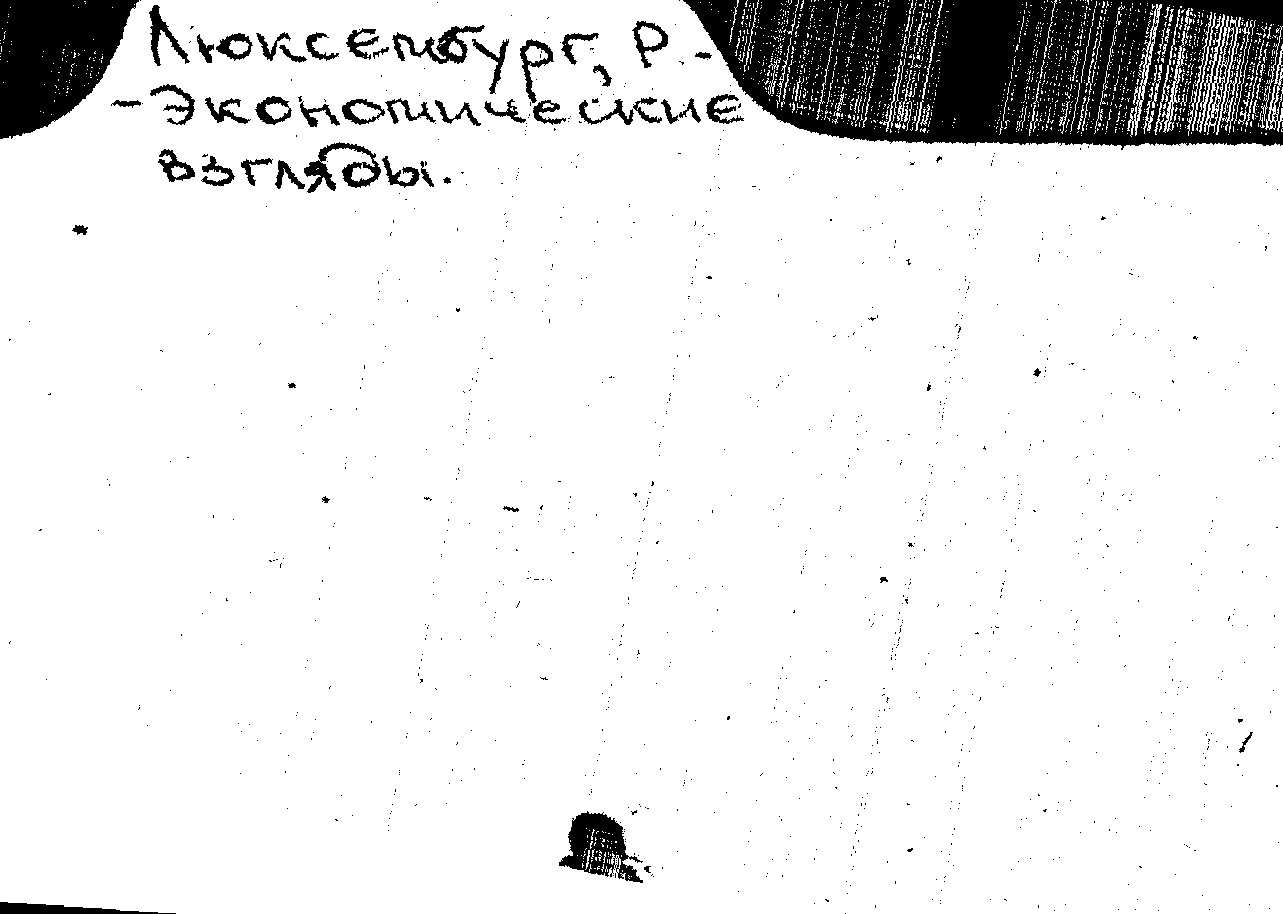 Люксембург, Р. -
- Экономические
взгляды.